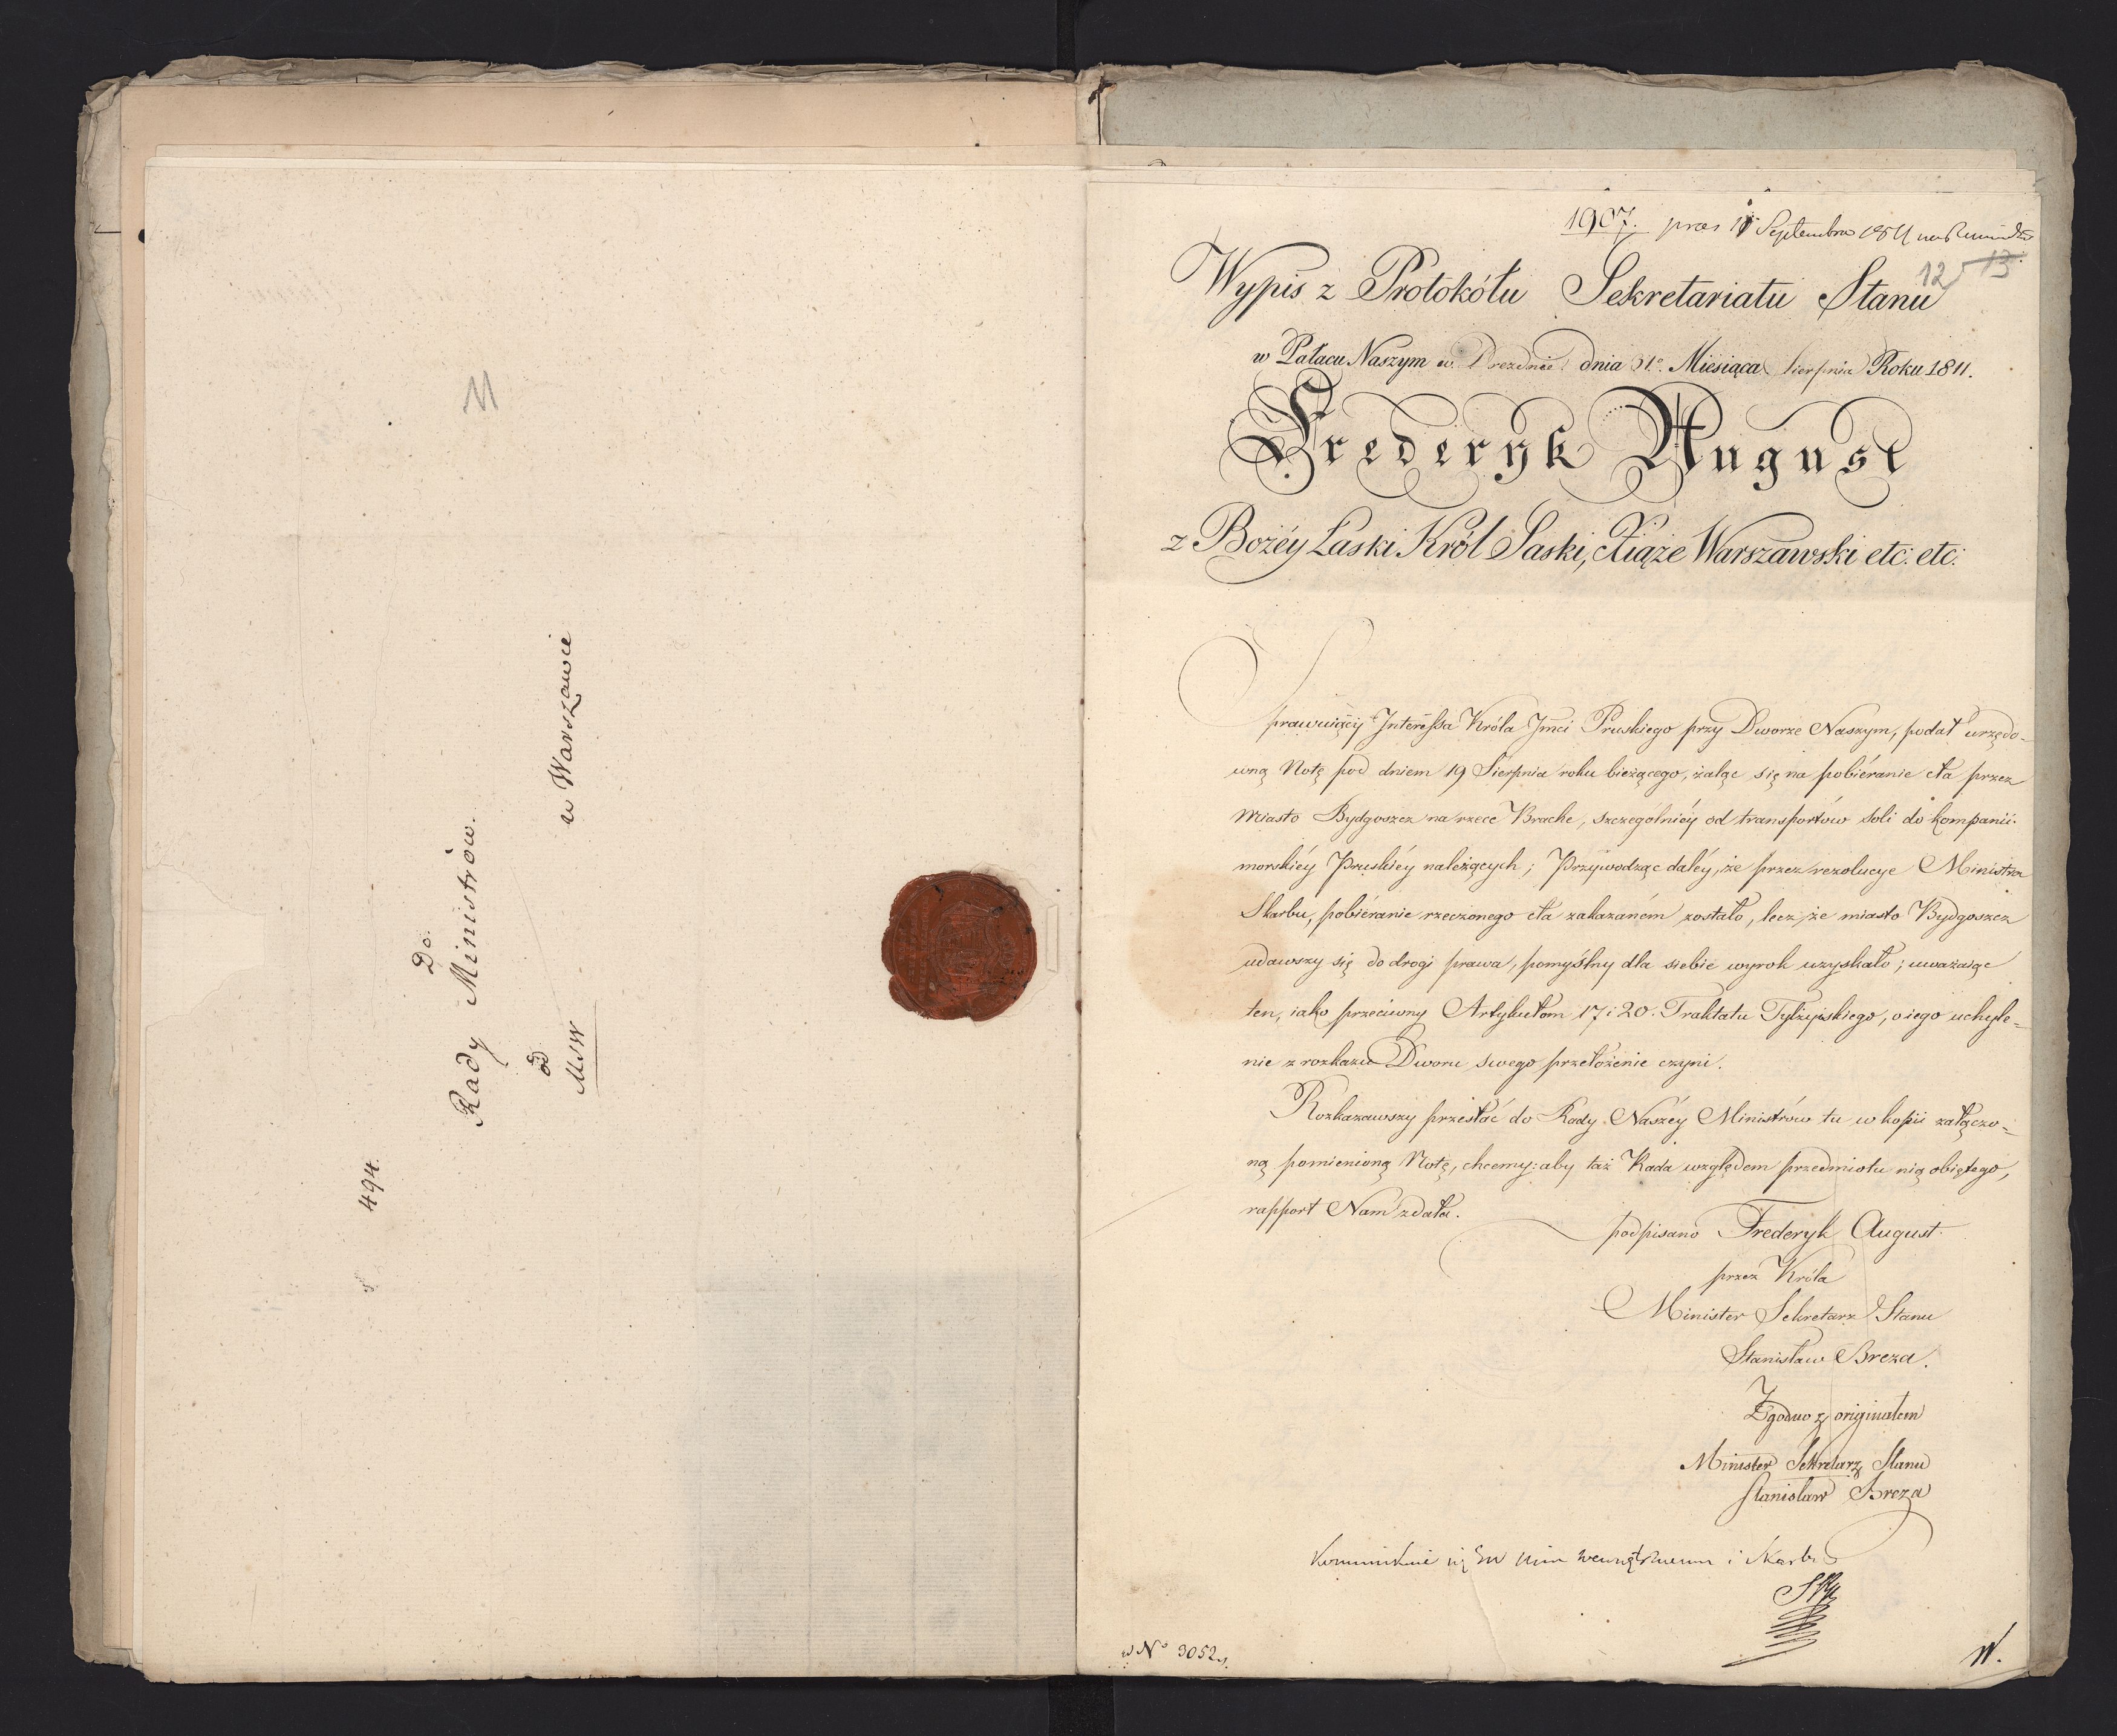 11
494.
Do
Rady Ministrów.
w Warszawie
od
MSW
1907. praes 11 Septembra
12 13
Wypis z Protokółu Sekretariatu Stanu
w Pałacu Naszym w Dreznie dnia 31º Miesiąca Sierpnia Roku 1811.
Frederyk August
z Bożéy Łaski Król Saski, Xiąże Warszawski etc: etc:
Sprawuiący Interessa Króla Jmci Pruskiego przy Dworze Naszym, podał urzędo-
wną Notę pod dniem 19 Sierpnia roku bieżącego, żaląc się na pobiéranie cła przez
miasto Bydgoszcz na rzece Brache, szczególniéy od transportów soli do kompanii
morskiéy Pruskiéy należących; Przywodząc daléy, że przez rezolucye Ministra
Skarbu, pobiéranie rzeczonego cła zakazaném zostało, lecz że miasto Bydgoszcz
udawszy się do drogi prawa, pomyślny dla siebie wyrok uzyskało; uważaiąc
ten, iako przeciwny Artykułom 17 i 20. Traktatu Tylżyiskiego, o iego uchyle-
nie z rozkazu Dworu swego przełożenie czyni.
Rozkazawszy przesłać do Rady Naszéy Ministrów tu w kopii załączo-
ną pomienioną Notę, chcemy: aby taż Rada względem przedmiotu nią obiętego,
rapport Nam zdała.
podpisano Frederyk August.
przez Króla
Minister Sekretarz Stanu
Stanisław Breza.
Zgodno z originałem
Minister Sekretarz Stanu
Stanisław Breza
i Skarbu
Nº 3052